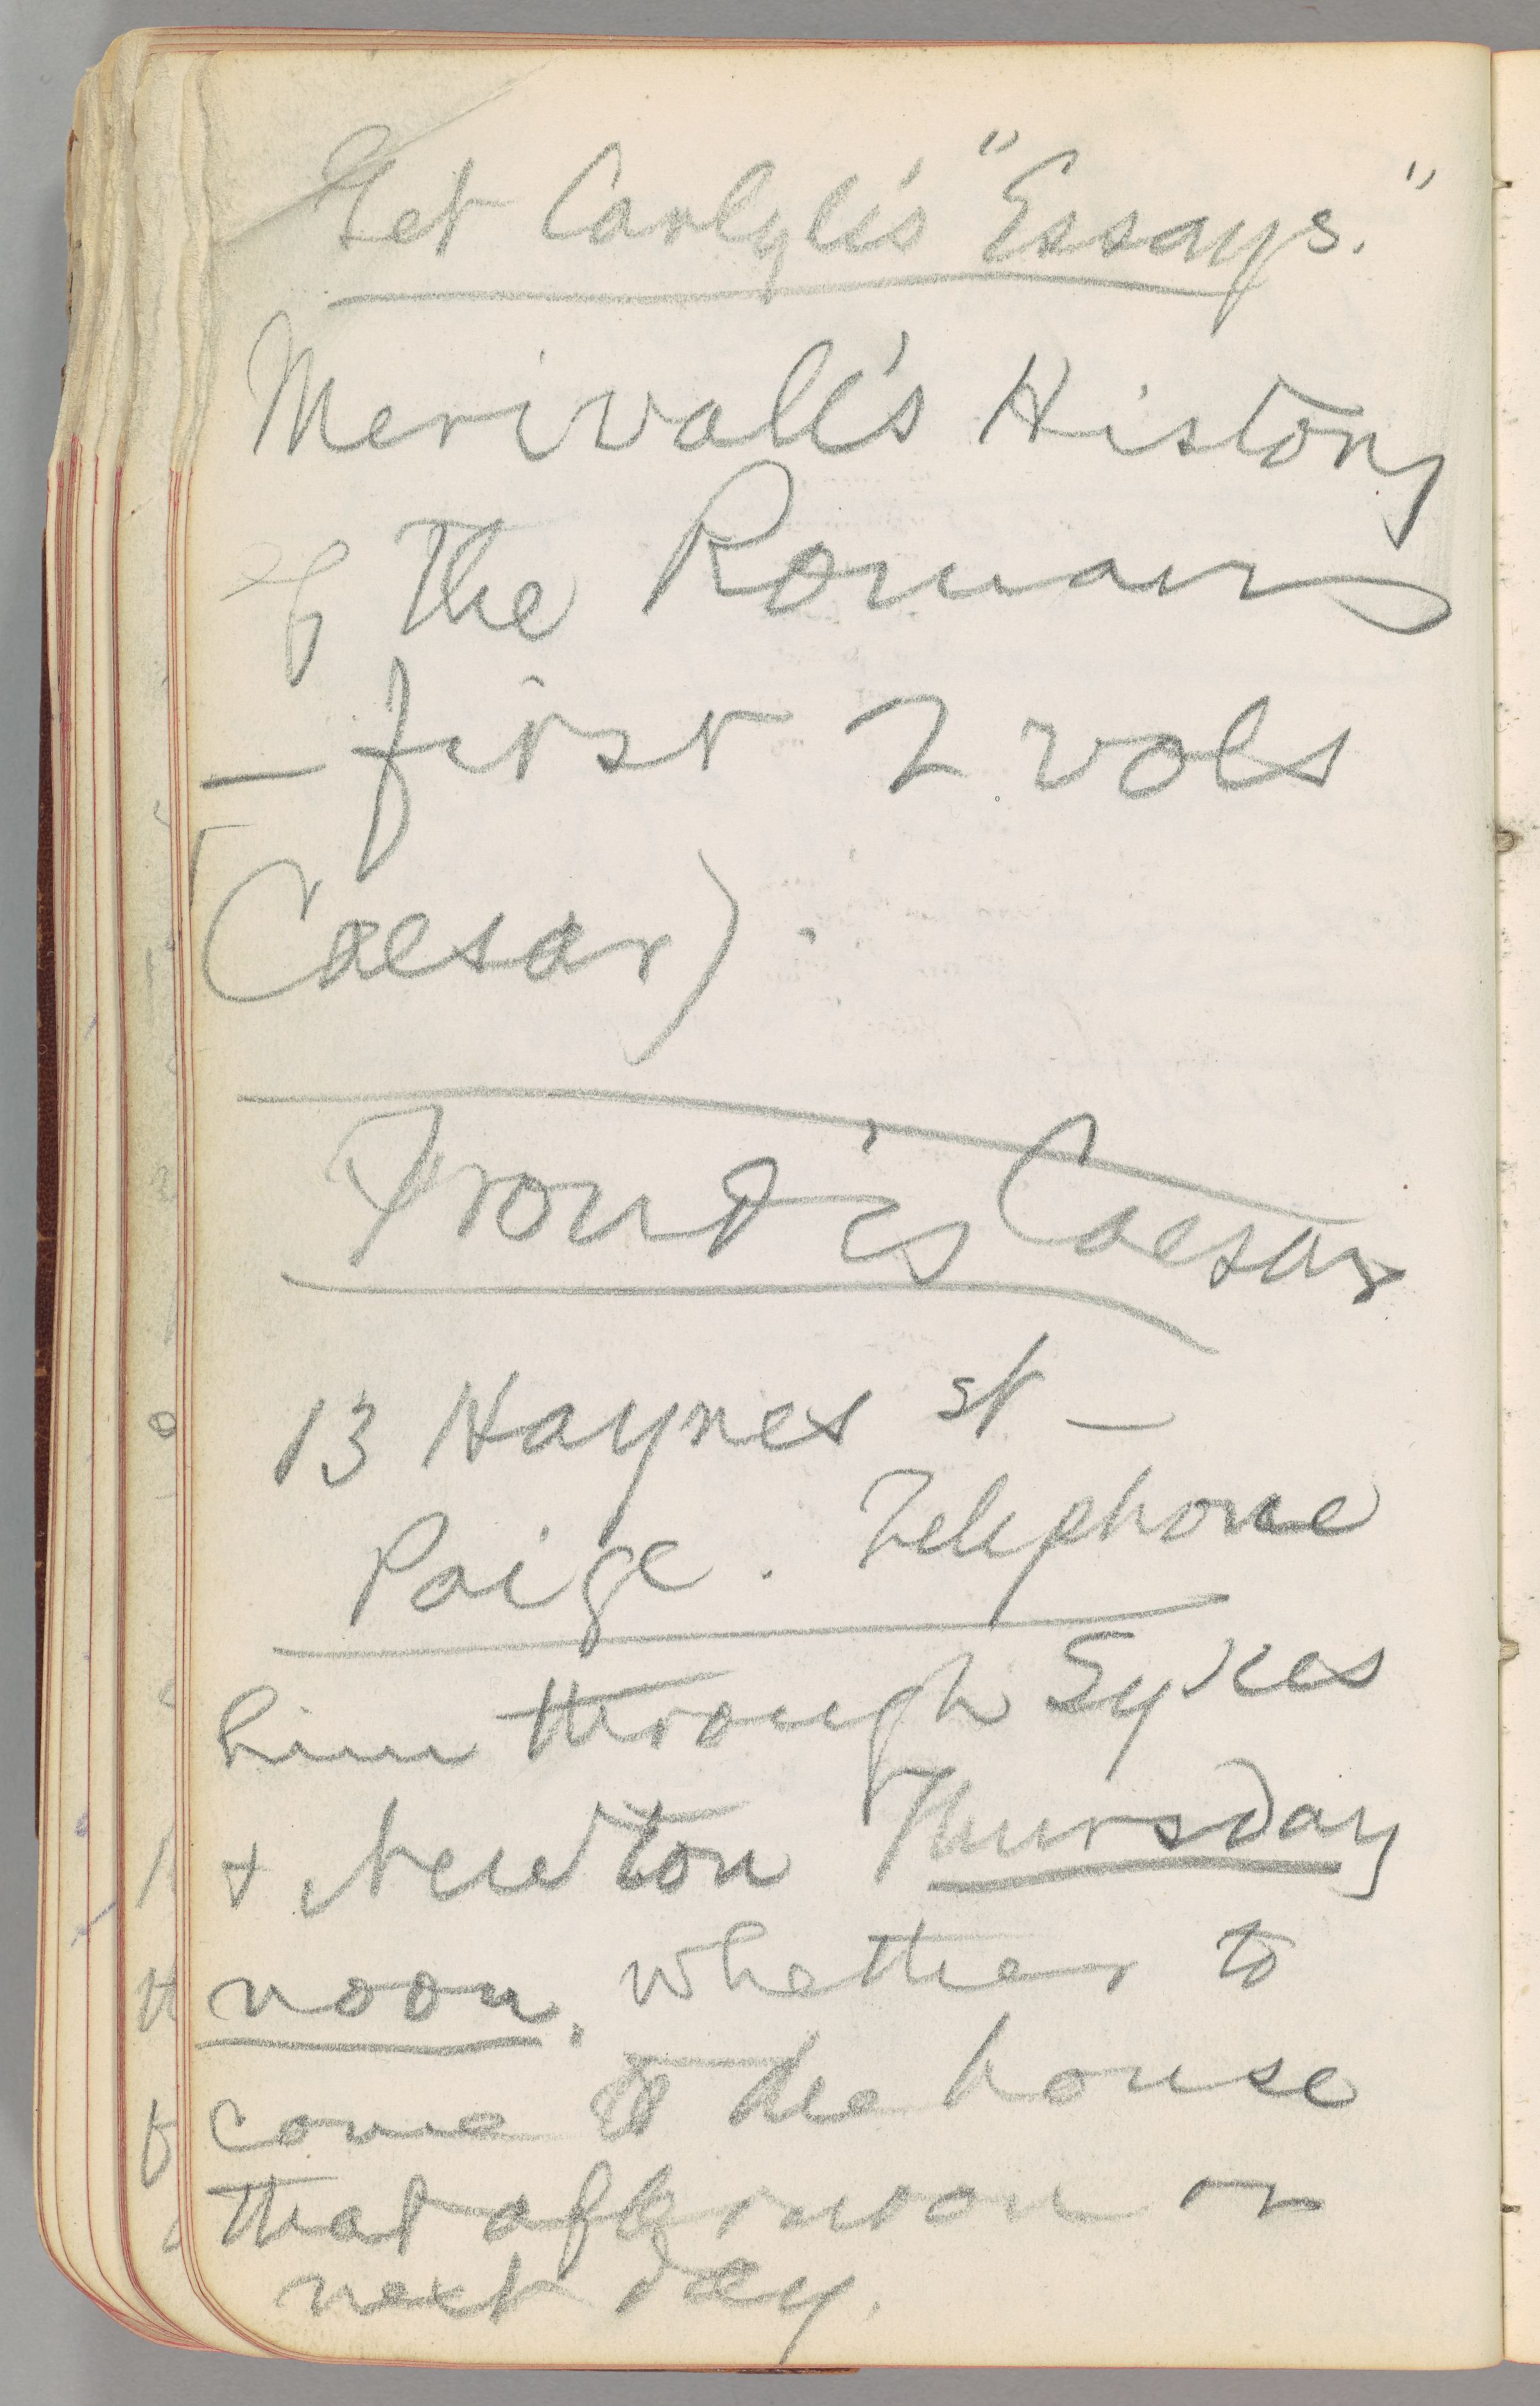 Get Carlyle's "Essays."
Merivale's History
of the Romans
— first 2 vols
(Caesar).
Froude's Caesar
13 Haynes st —
Paige. Telephone
him through Sykes
& Newton Thursday
noon. whether to
come to the house
that afternoon or
next day.